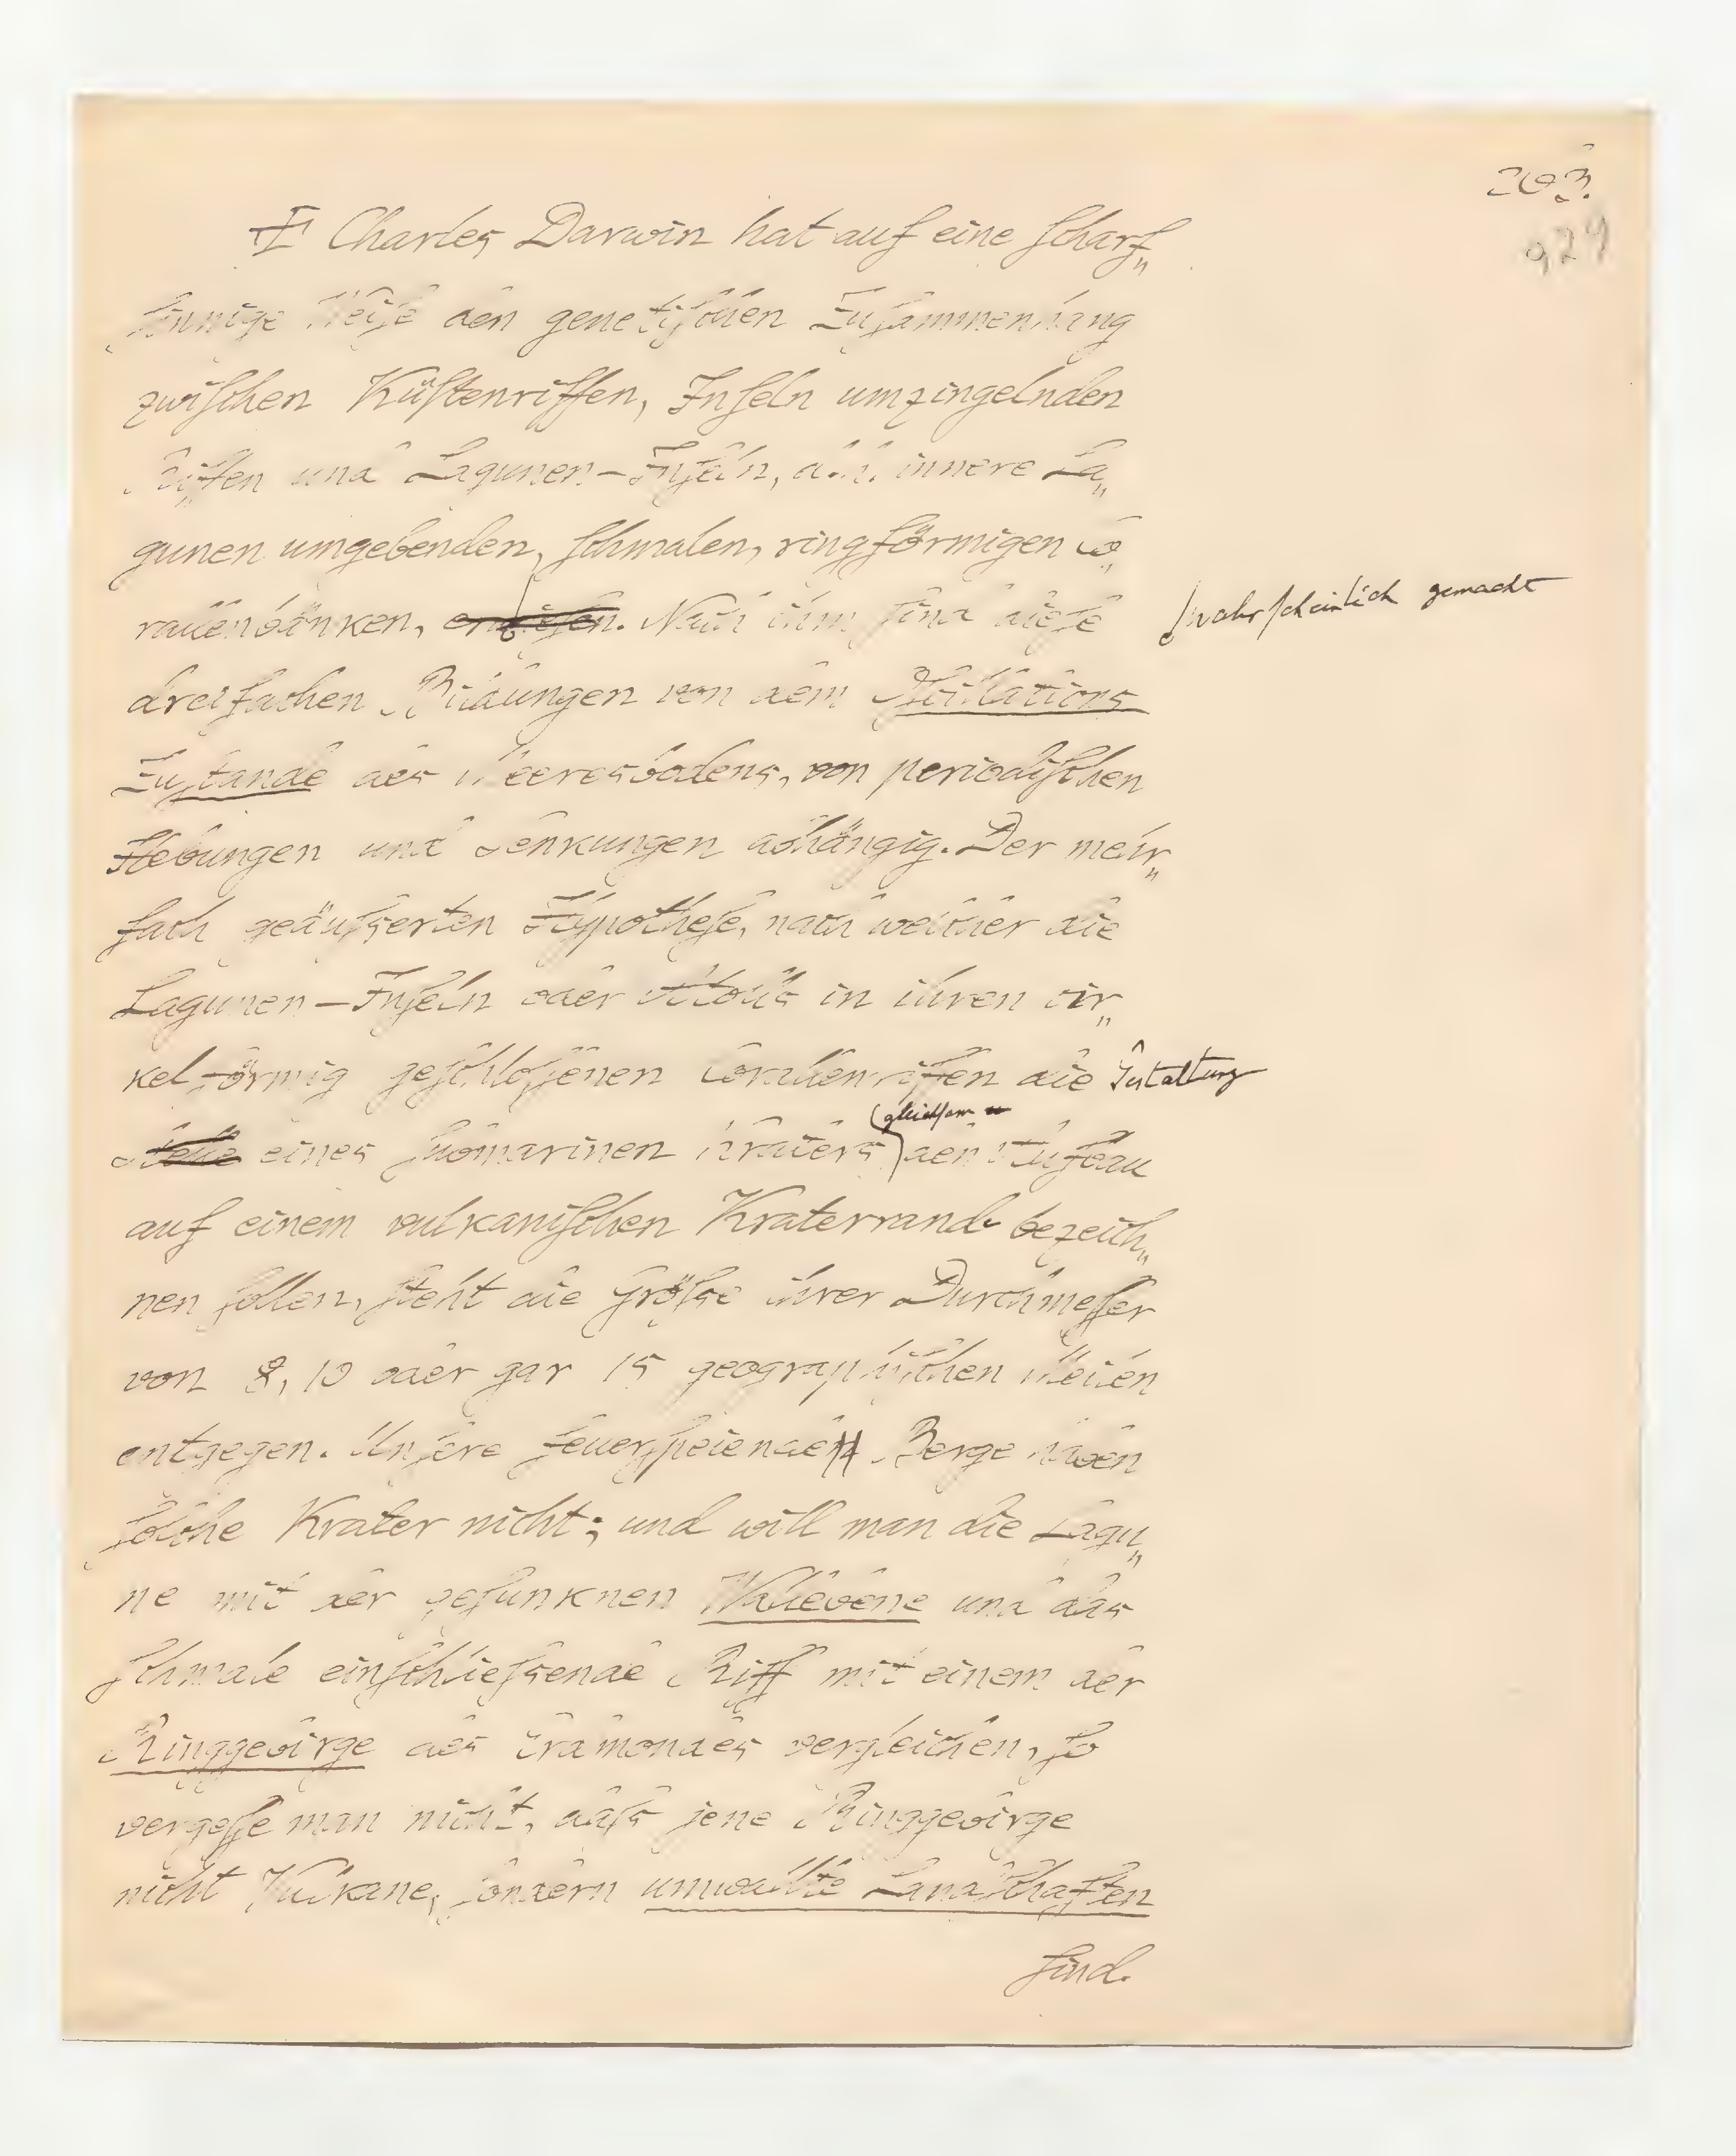 203.
929
Charles Darwin hat auf eine scharf„
sinnige Weise den genetischen Zusammenhang
zwischen Küstenriffen, Inseln umzingelnden
Riffen und Lagunen-Inseln, d.h. innere La„
gunen umgebenden, schmalen, ringförmigen Co„
rallenbänken, erwiesen. Nach ihm sind diese
wahrscheinlich gemacht
dreifachen Bildungen von dem Oscillations
Zustande des Meeresbodens, von periodischen
Hebungen und Senkungen abhängig. Der mehr„
fach geäußerten Hypothese, nach welcher die
Lagunen-Inseln oder Atolls in ihren cir„
kelförmig geschlossenen Corallenriffen die Gestaltung
gleichsam
eines submarinen Kraters den Aufbau
auf einem vulkanischen Kraterrande bezeich„
nen sollen, steht die Größe ihrer Durchmesser
von 8, 10 oder gar 15 geographischen Meilen
entgegen. Unsere feuerspeienden Berge haben
solche Krater nicht; und will man die Lagu„
ne mit der gesunknen Wallebene und das
schmale einschließende Riff mit einem der
Ringgebirge des Erdmondes vergleichen, so
vergesse man nicht, daß jene Ringgebirge
nicht Vulkane, sondern umwallte Landschaften
sind.